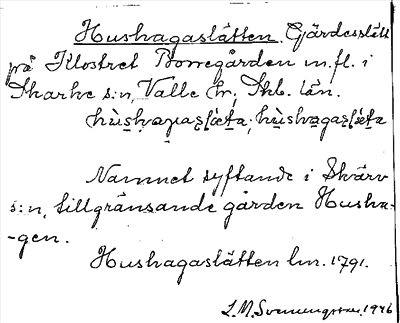 Hushagaslätten. Gärdesslätt
på Klostret Borregården m.fl. i
Skarke s:n, Valle hr, Skb. län.
Namnet syftande i Skärv
s:n, tillgränsande gården Husha-
-gen.
Hushagaslätten lm. 1791.
L.M. Svenungsson. 1946